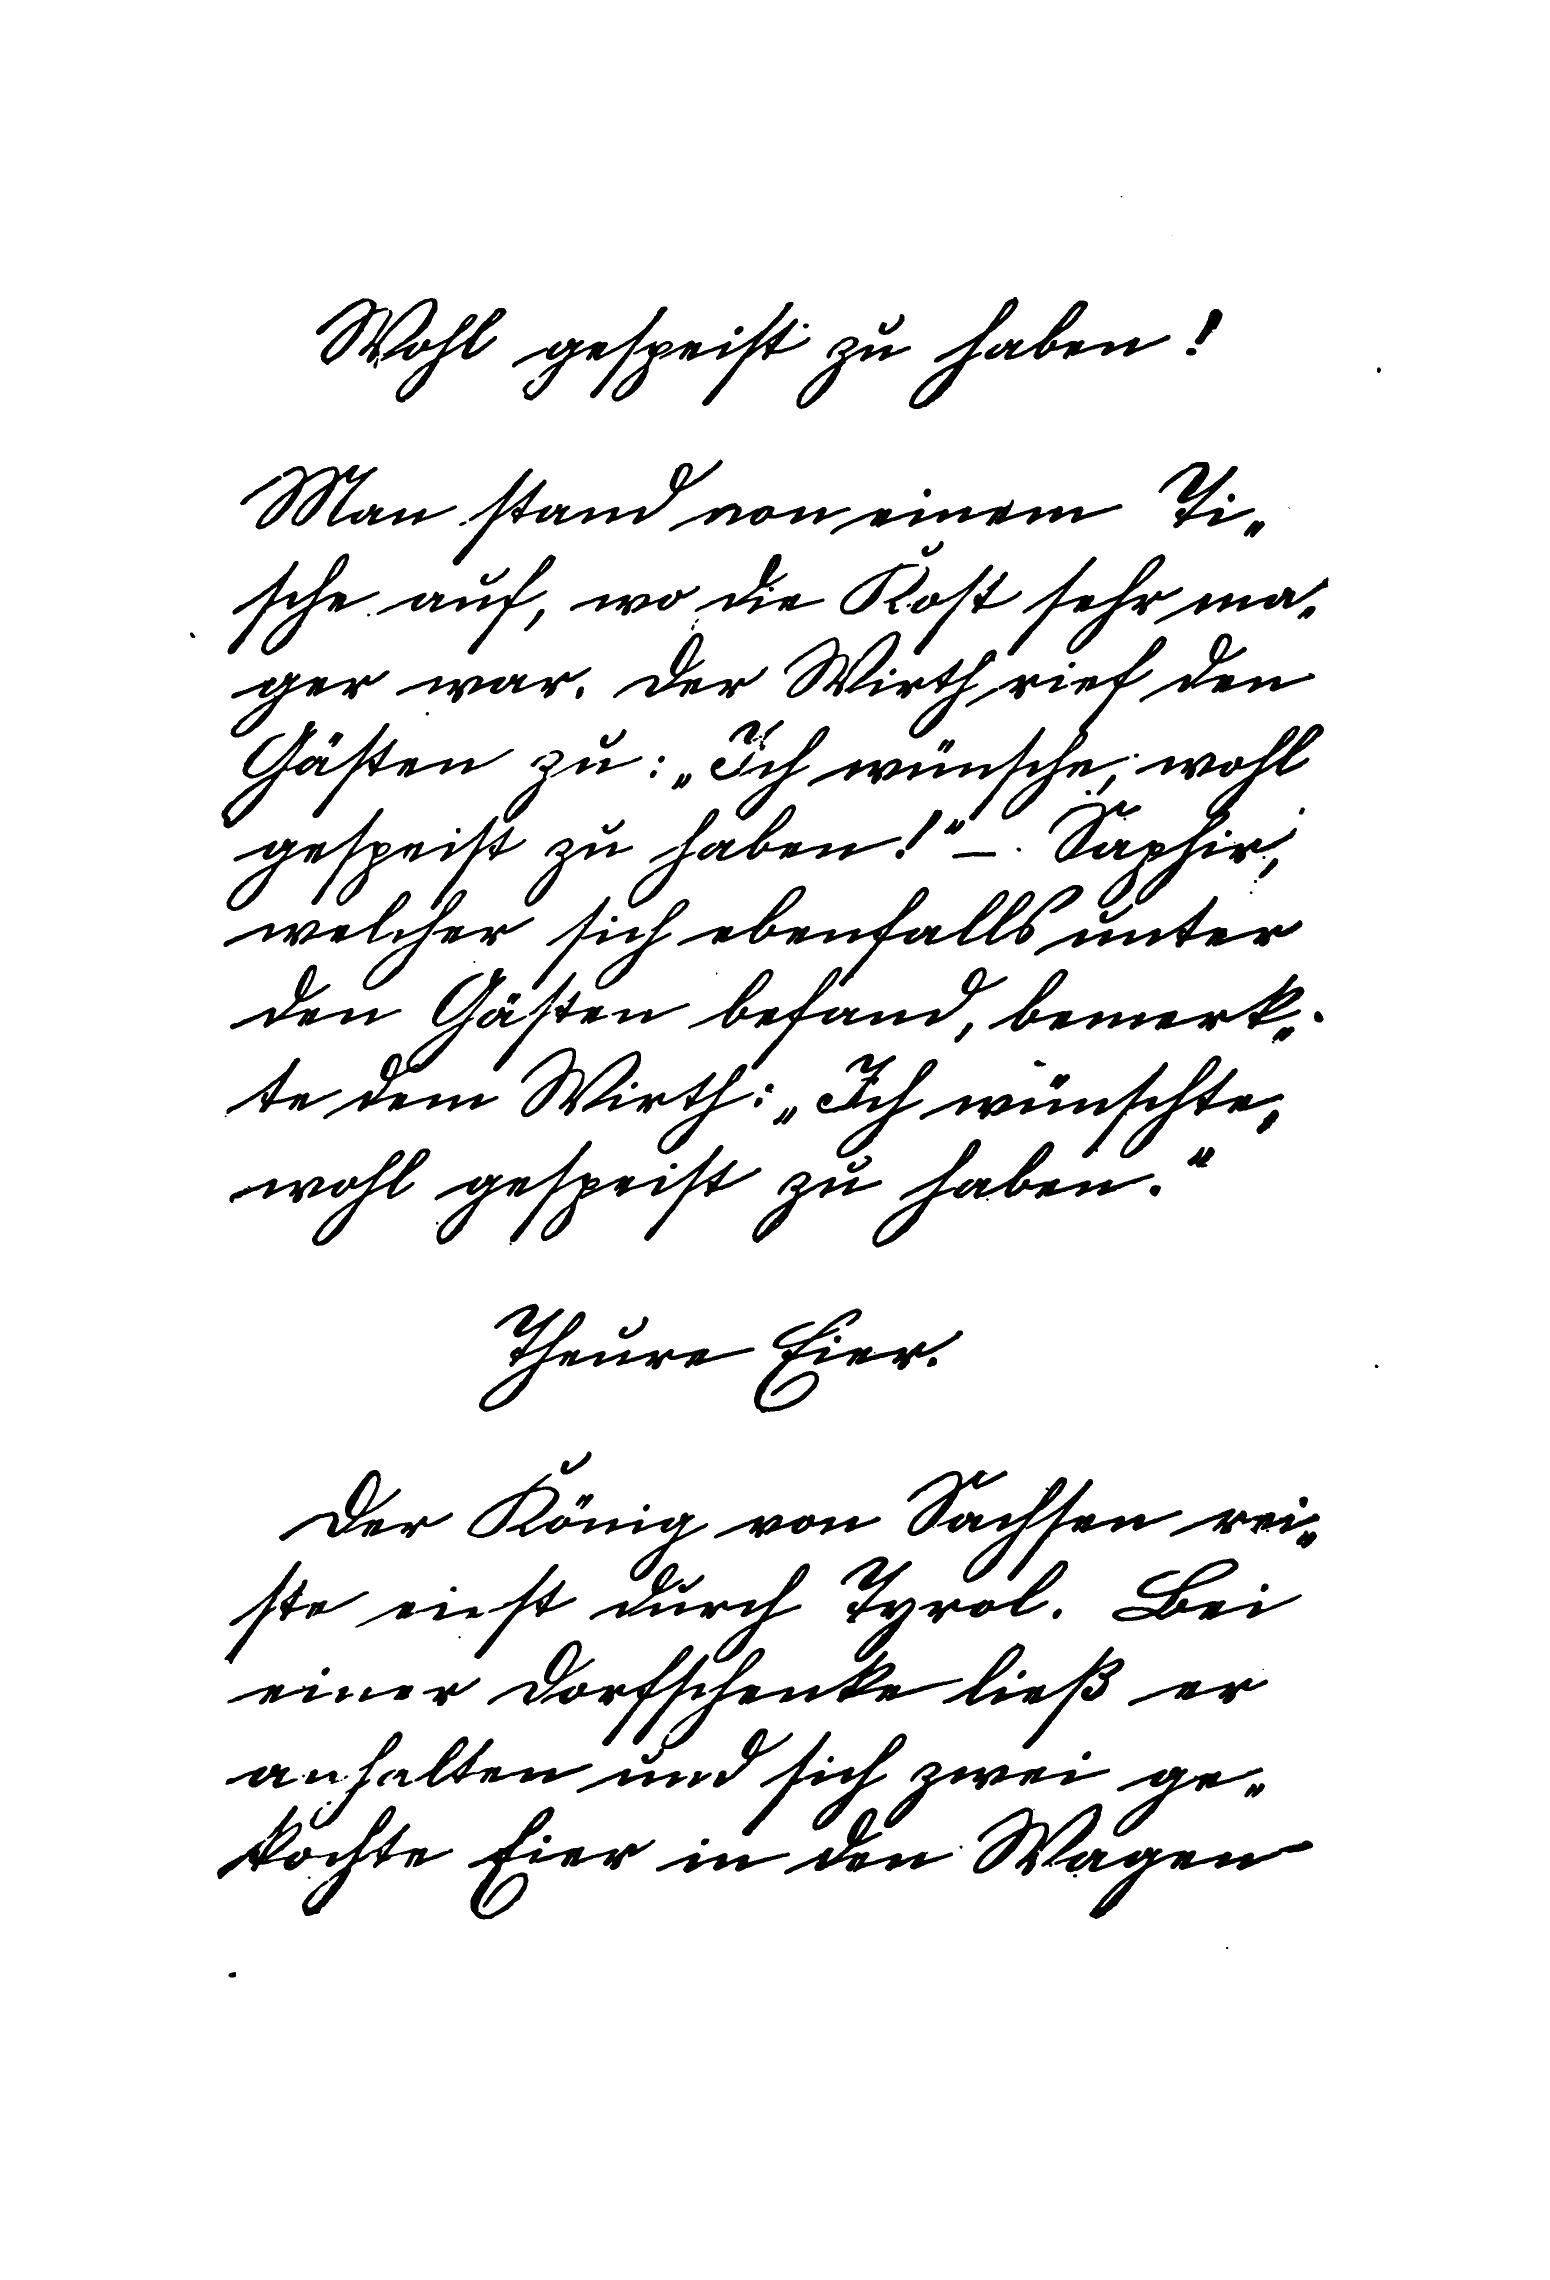 Wohl gespeist zu haben!
Man stand von einem Ti„
sche auf, wo die Kost sehr ma„
ger war. Der Wirth rief den
Gästen zu: „Ich wünsche, wohl
gespeist zu haben!“ — Saphir,
welcher sich ebenfalls unter
den Gästen befand, bemerk„
te dem Wirth: „Ich wünschte,
wohl gespeist zu haben.“
Theure Eier.
Der König von Sachsen rei„
ste einst durch Tyrol. Bei
einer Dorfschenke ließ er
anhalten und sich zwei ge„
kochte Eier in den Wagen